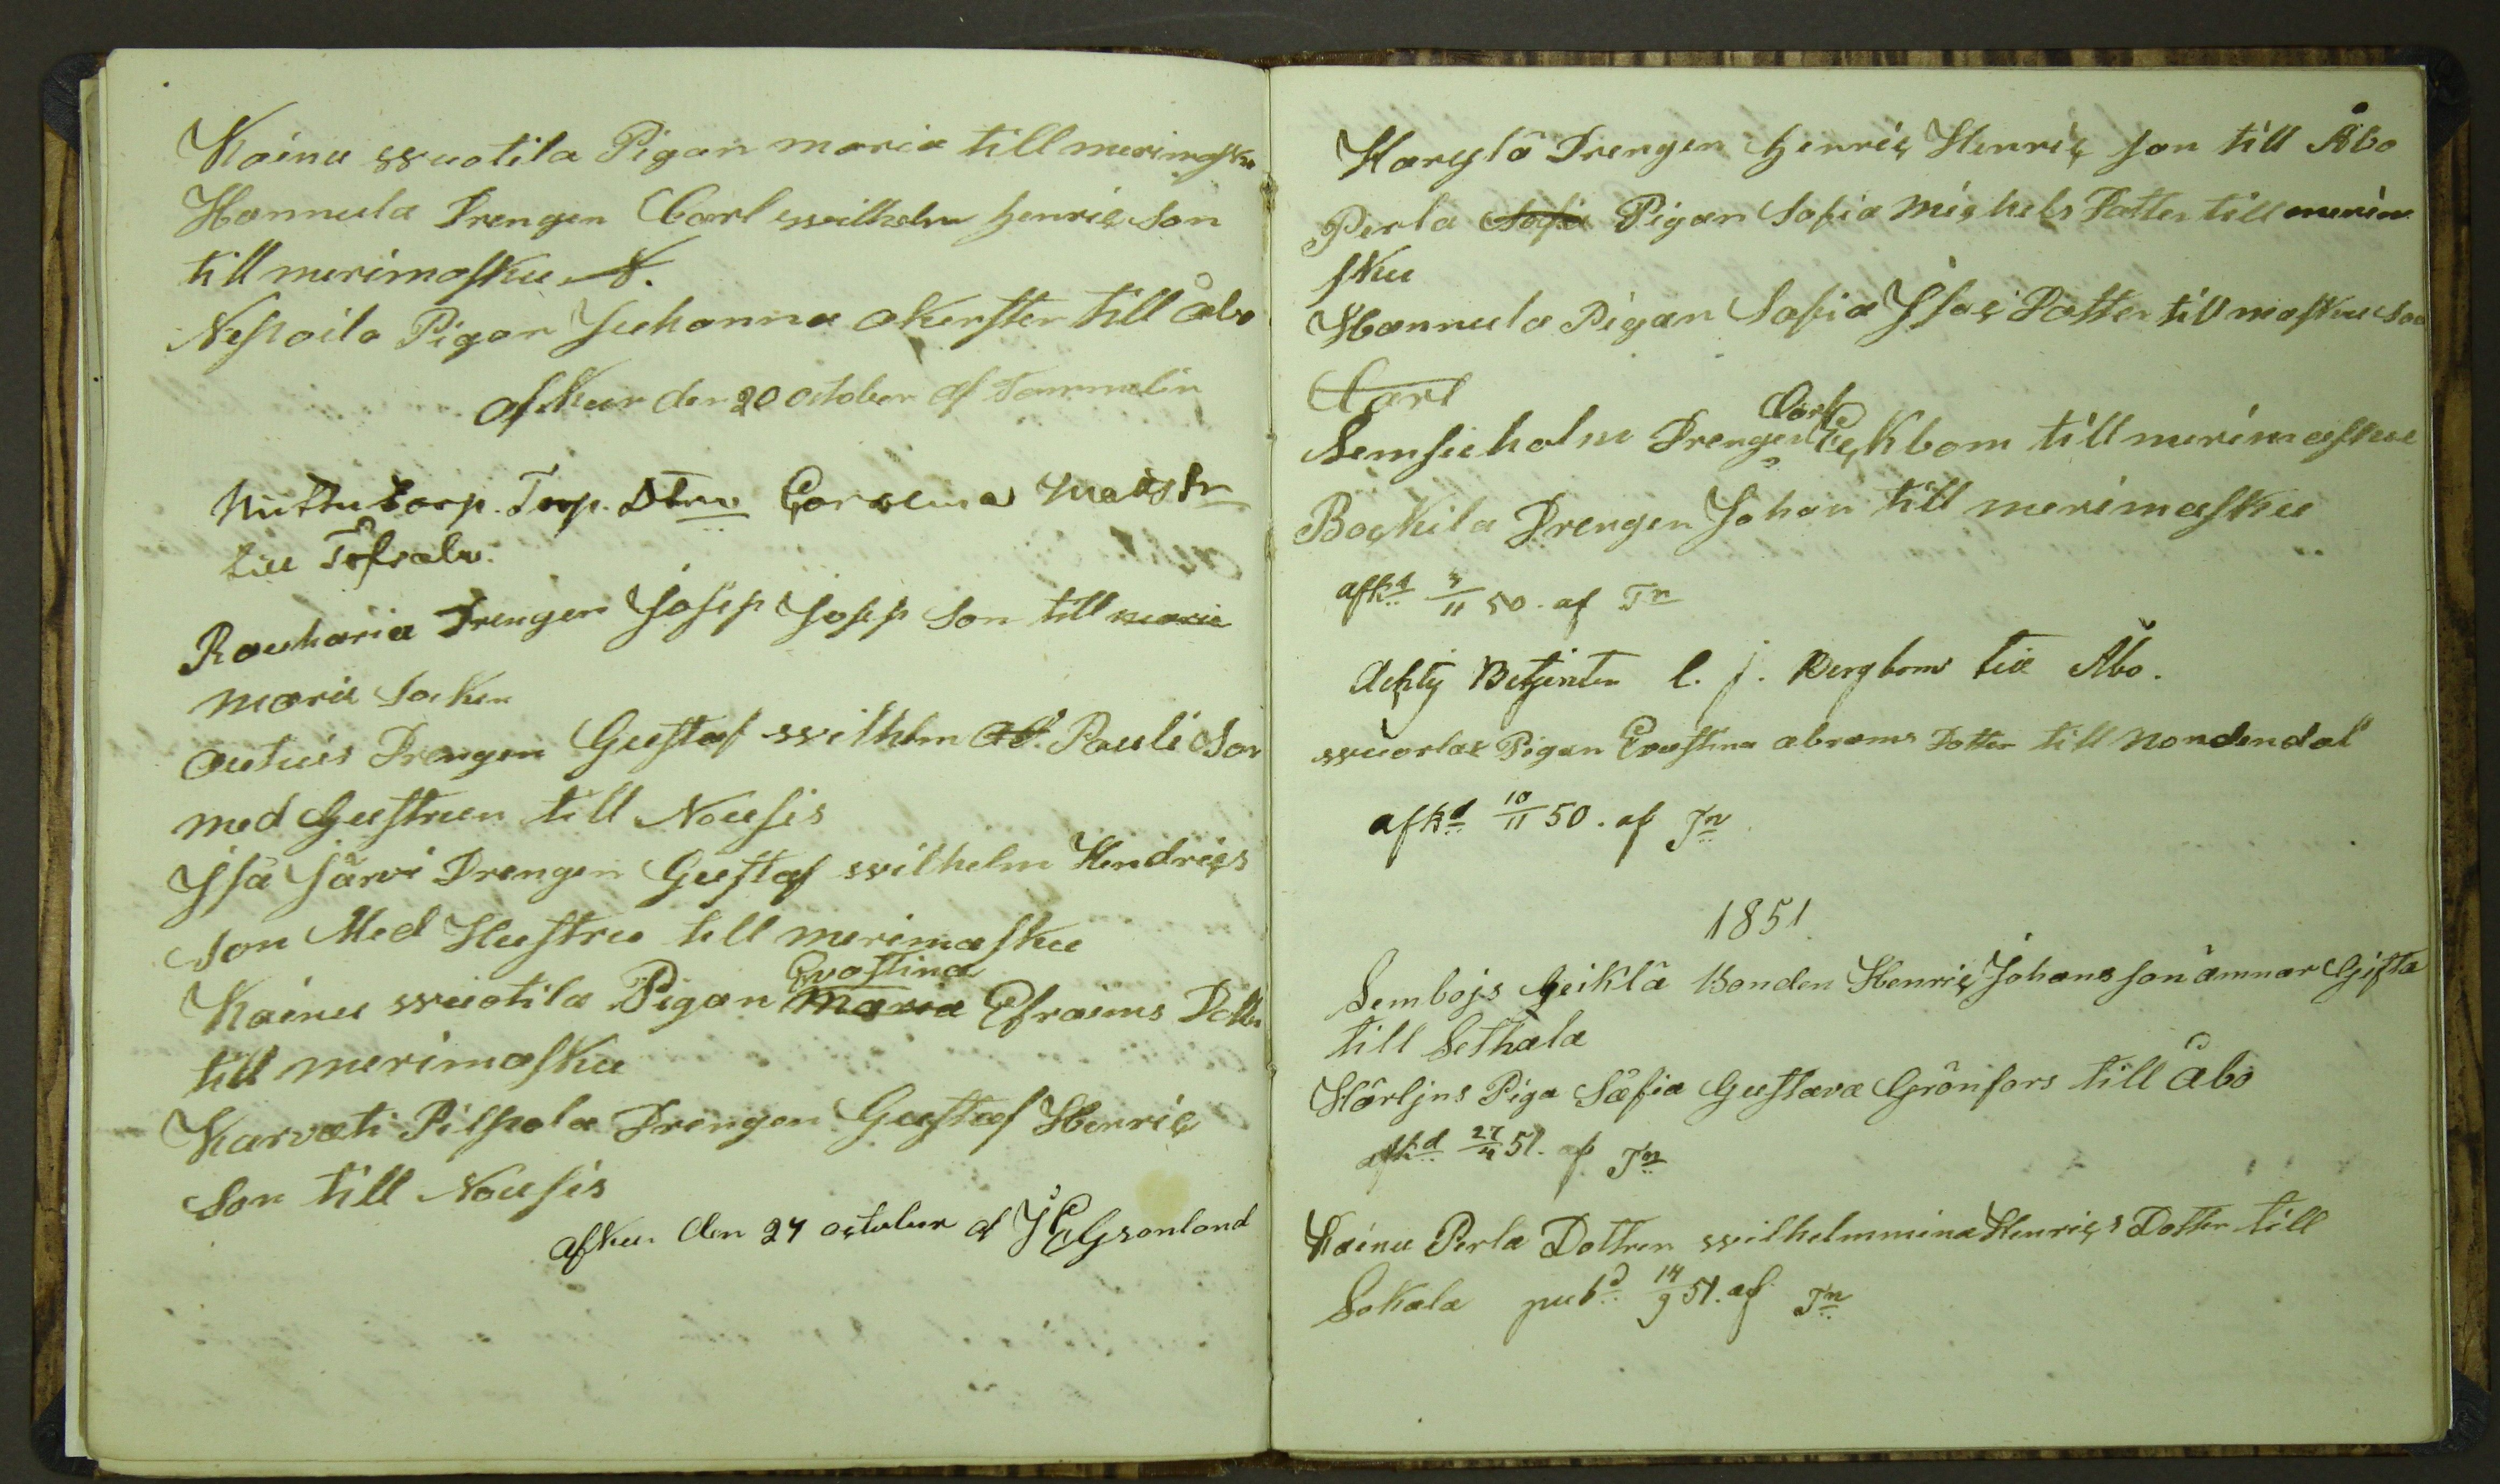 Kainu wuotila Pigan maria till merimasku
Hannula Drengen Carl wilhelm henric Son
till merimasku A.
Nespaila Pigan Juhanna akersten till åbo
afkun den 20 october af Tammelin
Nuttu Torp. Trp. Dtrn Carolina Matsdr
till Töfsala.
Rauharia Drengen Josep Josep Son till maria
marie Socken
autuis Drengen Gustaf wilhlm ad. Pauli Son
med Gustrun till Nousis
Isä Järvi Drengen Gustaf wilhelm Hendrics
Son Med Hustru till merimasku
Evastina
Kainu wuotila Pigan Maria Efraims Dotter
till merimasku
Karvati Pilpola Drengen Gustaf Henric
Son till Nousis
afkun den 27 october af J E Grönlond
Karylä Drengen henric Henric son till Åbo
Perla Sofia Pigan Sofia Michels Dotter till merim
sku
Hannula Pigan Sofia Isac Dotter till masku soc
Carl
Carl
Lemsieholm Drengen Eckbom till merimasku
Bockila Drengen Johan till merimasku
afkd 3/11 50. af Tn
Betjenten C. J. Bergbom till Åbo.
wuorlax Pigan Evastina abrams Dotter till nondendal
afkd 10/11 50. af Tn
1851
Lembojs heiklä Bonden Henric Johans son ämnar Gifta
till Lethala
Härljns Piga Säfia Gustava Grönfors till åbo
afkd 27/4 51. af Tn
Kainu Perla Dottren wilhelmmina Henrics Dotter till
Sokala pubd 14/9 51. af Tn